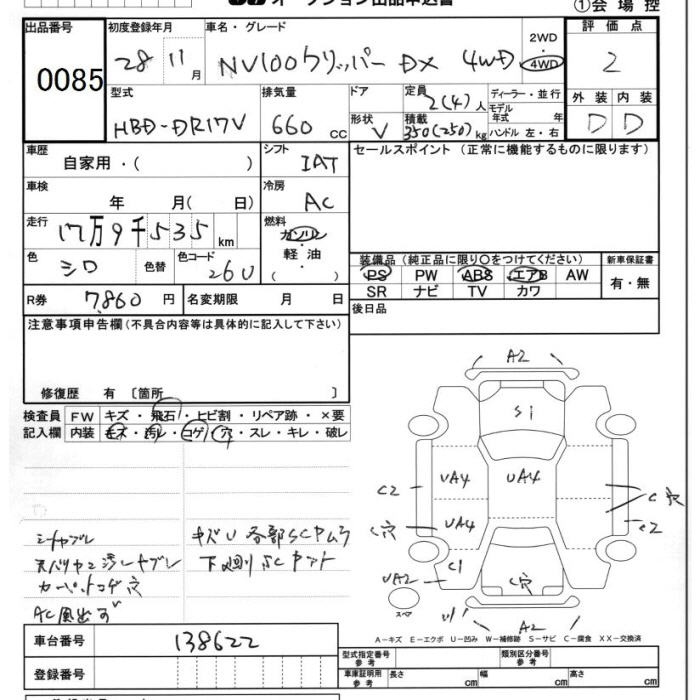 オークション出品申込書
①会場控
出品番号
初度登録年月
車名・グレード
評価点
0085
28年 11月
NV100クリッパー DX 4WD
2WD・4WD
2
型式
排気量
ドア
定員
ディーラー・並行
外装
内装
HBD-DR17V
660 cc
形状
V
2(4)人
積載
350(250)kg
モデル年式
年
ハンドル 左・右
D
D
車歴
自家用・( )
シフト
IAT
セールスポイント (正常に機能するものに限ります)
車検
年 月( 日)
冷房
AC
走行
17万9千535km
燃料
ガソリン・軽油・( )
色
シロ
色替
色コード
26U
装備品 (純正品に限り○をつけてください)
新車保証書
PS PW ABS エアB AW
SR ナビ TV カワ
有・無
R券
7,860 円
名変期限 月 日
後日品
注意事項申告欄 (不具合内容等は具体的に記入して下さい)
修復歴 有 〔箇所 〕
検査員記入欄
FW キズ・飛石・ヒビ割・リペア跡・×要
内装 キズ・汚レ・コゲ・穴・スレ・キレ・破レ
シートヤブレ
キズU 各部SCヤムラ
下廻りSC
カーペットコゲ穴
AC風出ず
A2
S1
UA4
UA4
UA4
C2
C穴
C穴
C2
UA2
C1
C穴
A2
スペア
A-キズ E-エクボ U-凹み W-補修跡 S-サビ C-腐食 XX-交換済
車台番号
138622
登録番号
型式指定番号 参考
類別区分番号 参考
車庫証明用 参考
長さ cm
幅 cm
高さ cm